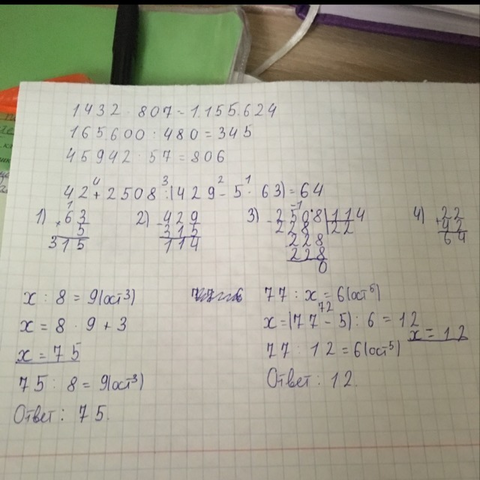 1.432 · 807 = 1.155.624
165.600 : 480 = 345
45942 : 57 = 806
42 + 2508 : (429 - 5 · 63) = 64
4 3 2 1
1) 63 × 5 315
2) 429 - 315 114
3) 2508 | 114 228 | 22 228 228 0
4) 22 + 42 64
x : 8 = 9(ост 3)
x = 8 · 9 + 3
x = 75
75 : 8 = 9(ост 3)
Ответ: 75.
77 : x = 6(ост 5)
x = (77 - 5) : 6 = 12
72
x = 12
77 : 12 = 6(ост 5)
Ответ: 12.